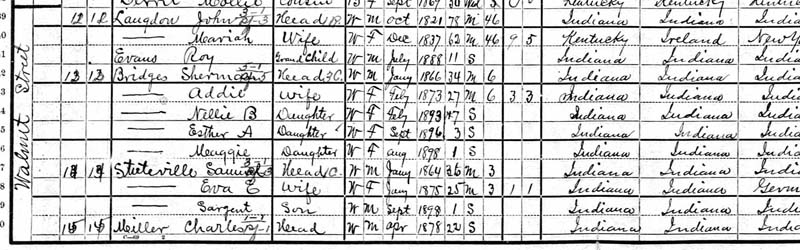 Walnut Street
Cousin Sept 1869 30 Wd Kentucky Kentucky
12 12 Langdon John Head W M Oct 1821 78 M 46 Indiana Indiana Indiana
— Mariah Wife W F Dec 1837 62 M 46 9 5 Kentucky Ireland New Y
Evans Roy Grand Child W M July 1888 11 S Indiana Indiana Indiana
13 13 Bridges Sherman Head W M Jany 1866 34 M 6 Indiana Indiana Indiana
— Addie Wife W F July 1873 27 M 6 3 3 Indiana Indiana Indiana
— Nellie B Daughter W F July 1893 7 S Indiana Indiana Indiana
— Esther A Daughter W F Sept 1896 3 S Indiana Indiana Indiana
— Meaggie Daughter W F Aug 1898 1 S Indiana Indiana Indiana
14 14 Steteville Samuel Head W M Jany 1864 36 M 3 Indiana Indiana Indiana
— Eva E Wife W F Jany 1875 25 M 3 1 1 Indiana Indiana Germ
— Sargent Son W M Sept 1898 1 S Indiana Indiana Indiana
15 15 Miller Charles Head W M Apr 1878 22 S Indiana Indiana Indiana